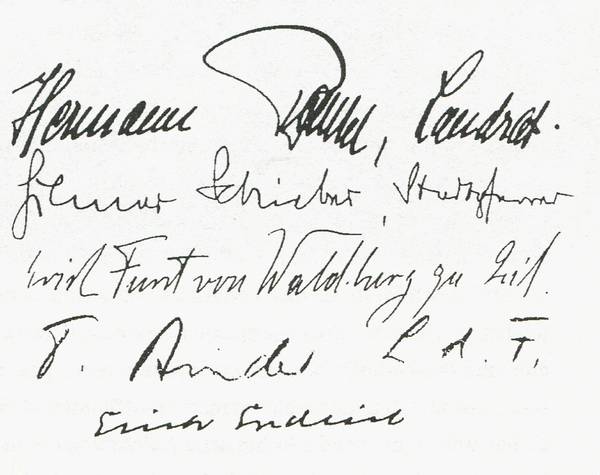 Hermann , Landrat.
Hilmar Schieber, Stadtpfarrer
Erich Fürst von Waldburg zu Zeil.
F. Binder L. d. T.
Erich Endrich